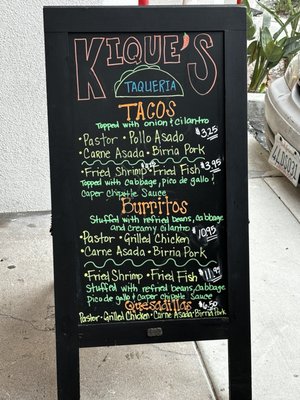 KIQUE'S
TAQUERIA
TACOS
Topped with onion & cilantro
• Pastor • Pollo Asado $3.25
• Carne Asada • Birria Pork
• Fried Shrimp • Fried Fish $3.95
Topped with cabbage, pico de gallo &
Caper Chipotle Sauce
Burritos
Stuffed with refried beans, cabbage
and creamy cilantro
• Pastor • Grilled Chicken $10.95
• Carne Asada • Birria Pork
• Fried Shrimp • Fried Fish $11.99
Stuffed with refried beans, Cabbage
pico de gallo & Caper Chipotle Sauce
Quesadillas $6.50
Pastor • Grilled Chicken • Carne Asada • Birria Pork